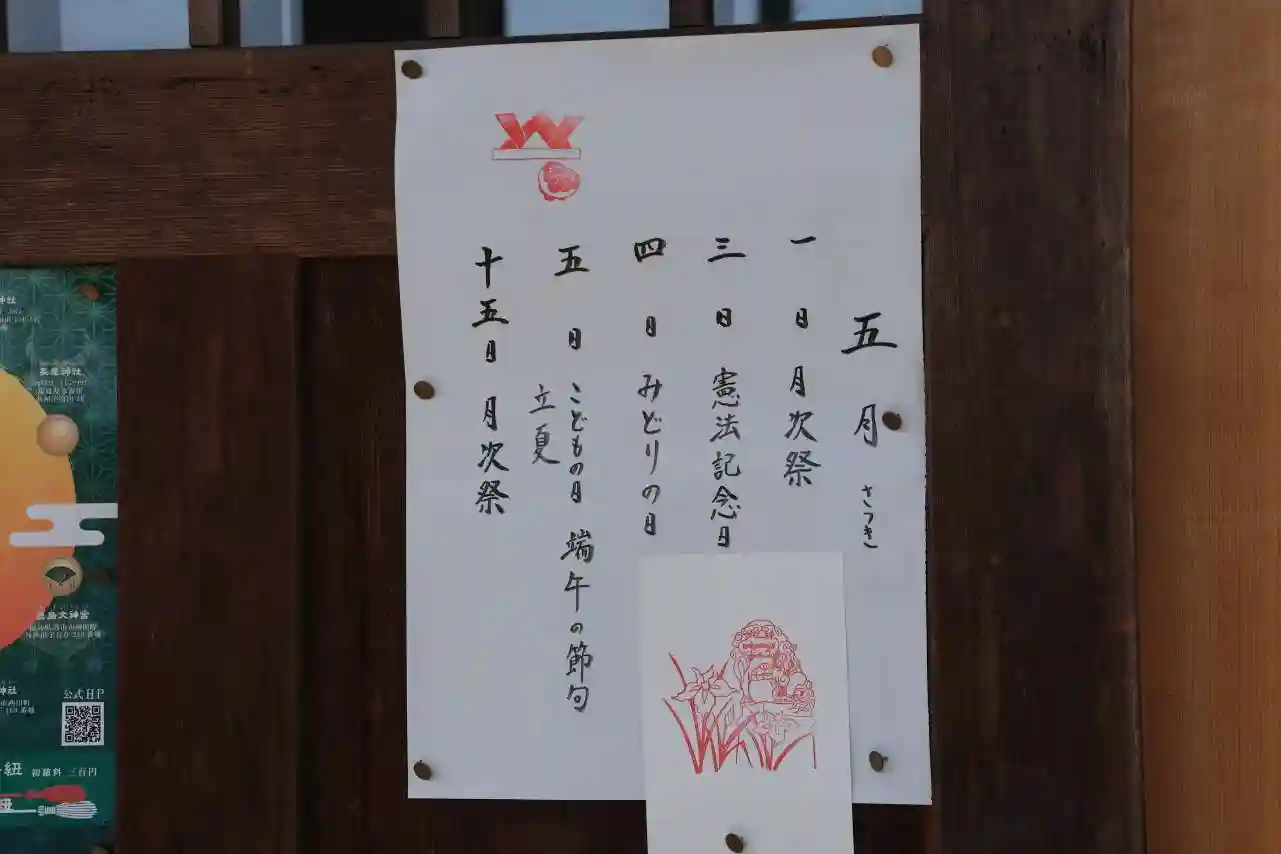 五月 さつき
一日 月次祭
三日 憲法記念日
四日 みどりの日
五日 こどもの日 端午の節句
立夏
十五日 月次祭
神社
長屋神社
神社
公式HP
紐 初穂料 三百円
紐